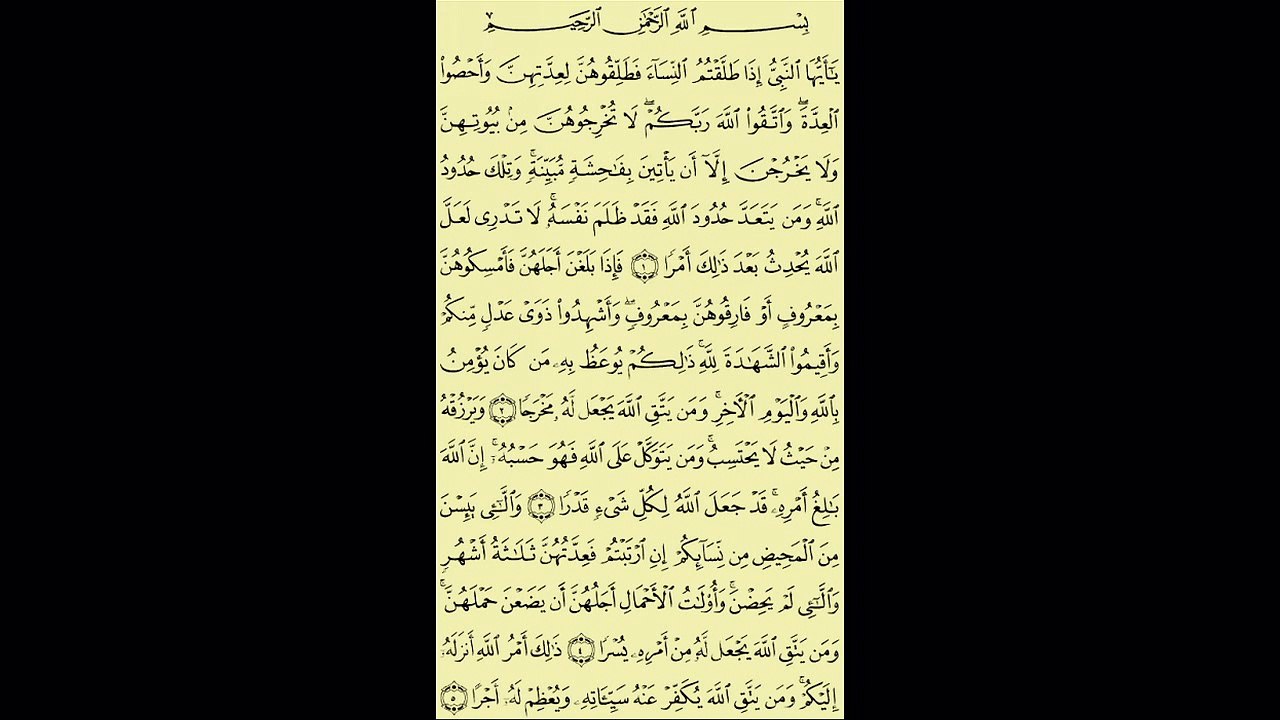 بِسْمِ ٱللَّهِ ٱلرَّحْمَٰنِ ٱلرَّحِيمِ
يَٰٓأَيُّهَا ٱلنَّبِىُّ إِذَا طَلَّقْتُمُ ٱلنِّسَآءَ فَطَلِّقُوهُنَّ لِعِدَّتِهِنَّ وَأَحْصُوا۟
ٱلْعِدَّةَ ۖ وَٱتَّقُوا۟ ٱللَّهَ رَبَّكُمْ ۖ لَا تُخْرِجُوهُنَّ مِنۢ بُيُوتِهِنَّ
وَلَا يَخْرُجْنَ إِلَّآ أَن يَأْتِينَ بِفَٰحِشَةٍ مُّبَيِّنَةٍ ۚ وَتِلْكَ حُدُودُ
ٱللَّهِ ۚ وَمَن يَتَعَدَّ حُدُودَ ٱللَّهِ فَقَدْ ظَلَمَ نَفْسَهُۥ ۚ لَا تَدْرِى لَعَلَّ
ٱللَّهَ يُحْدِثُ بَعْدَ ذَٰلِكَ أَمْرًا ١ فَإِذَا بَلَغْنَ أَجَلَهُنَّ فَأَمْسِكُوهُنَّ
بِمَعْرُوفٍ أَوْ فَارِقُوهُنَّ بِمَعْرُوفٍ ۖ وَأَشْهِدُوا۟ ذَوَىْ عَدْلٍ مِّنكُمْ
وَأَقِيمُوا۟ ٱلشَّهَٰدَةَ لِلَّهِ ۚ ذَٰلِكُمْ يُوعَظُ بِهِۦ مَن كَانَ يُؤْمِنُ
بِٱللَّهِ وَٱلْيَوْمِ ٱلْءَاخِرِ ۚ وَمَن يَتَّقِ ٱللَّهَ يَجْعَل لَّهُۥ مَخْرَجًا ٢ وَيَرْزُقْهُ
مِنْ حَيْثُ لَا يَحْتَسِبُ ۚ وَمَن يَتَوَكَّلْ عَلَى ٱللَّهِ فَهُوَ حَسْبُهُۥٓ ۚ إِنَّ ٱللَّهَ
بَٰلِغُ أَمْرِهِۦ ۚ قَدْ جَعَلَ ٱللَّهُ لِكُلِّ شَىْءٍ قَدْرًا ٣ وَٱلَّٰٓـِٔى يَئِسْنَ
مِنَ ٱلْمَحِيضِ مِن نِّسَآئِكُمْ إِنِ ٱرْتَبْتُمْ فَعِدَّتُهُنَّ ثَلَٰثَةُ أَشْهُرٍ
وَٱلَّٰٓـِٔى لَمْ يَحِضْنَ ۚ وَأُو۟لَٰتُ ٱلْأَحْمَالِ أَجَلُهُنَّ أَن يَضَعْنَ حَمْلَهُنَّ ۚ
وَمَن يَتَّقِ ٱللَّهَ يَجْعَل لَّهُۥ مِنْ أَمْرِهِۦ يُسْرًا ٤ ذَٰلِكَ أَمْرُ ٱللَّهِ أَنزَلَهُۥٓ
إِلَيْكُمْ ۚ وَمَن يَتَّقِ ٱللَّهَ يُكَفِّرْ عَنْهُ سَيِّـَٔاتِهِۦ وَيُعْظِمْ لَهُۥٓ أَجْرًا ٥